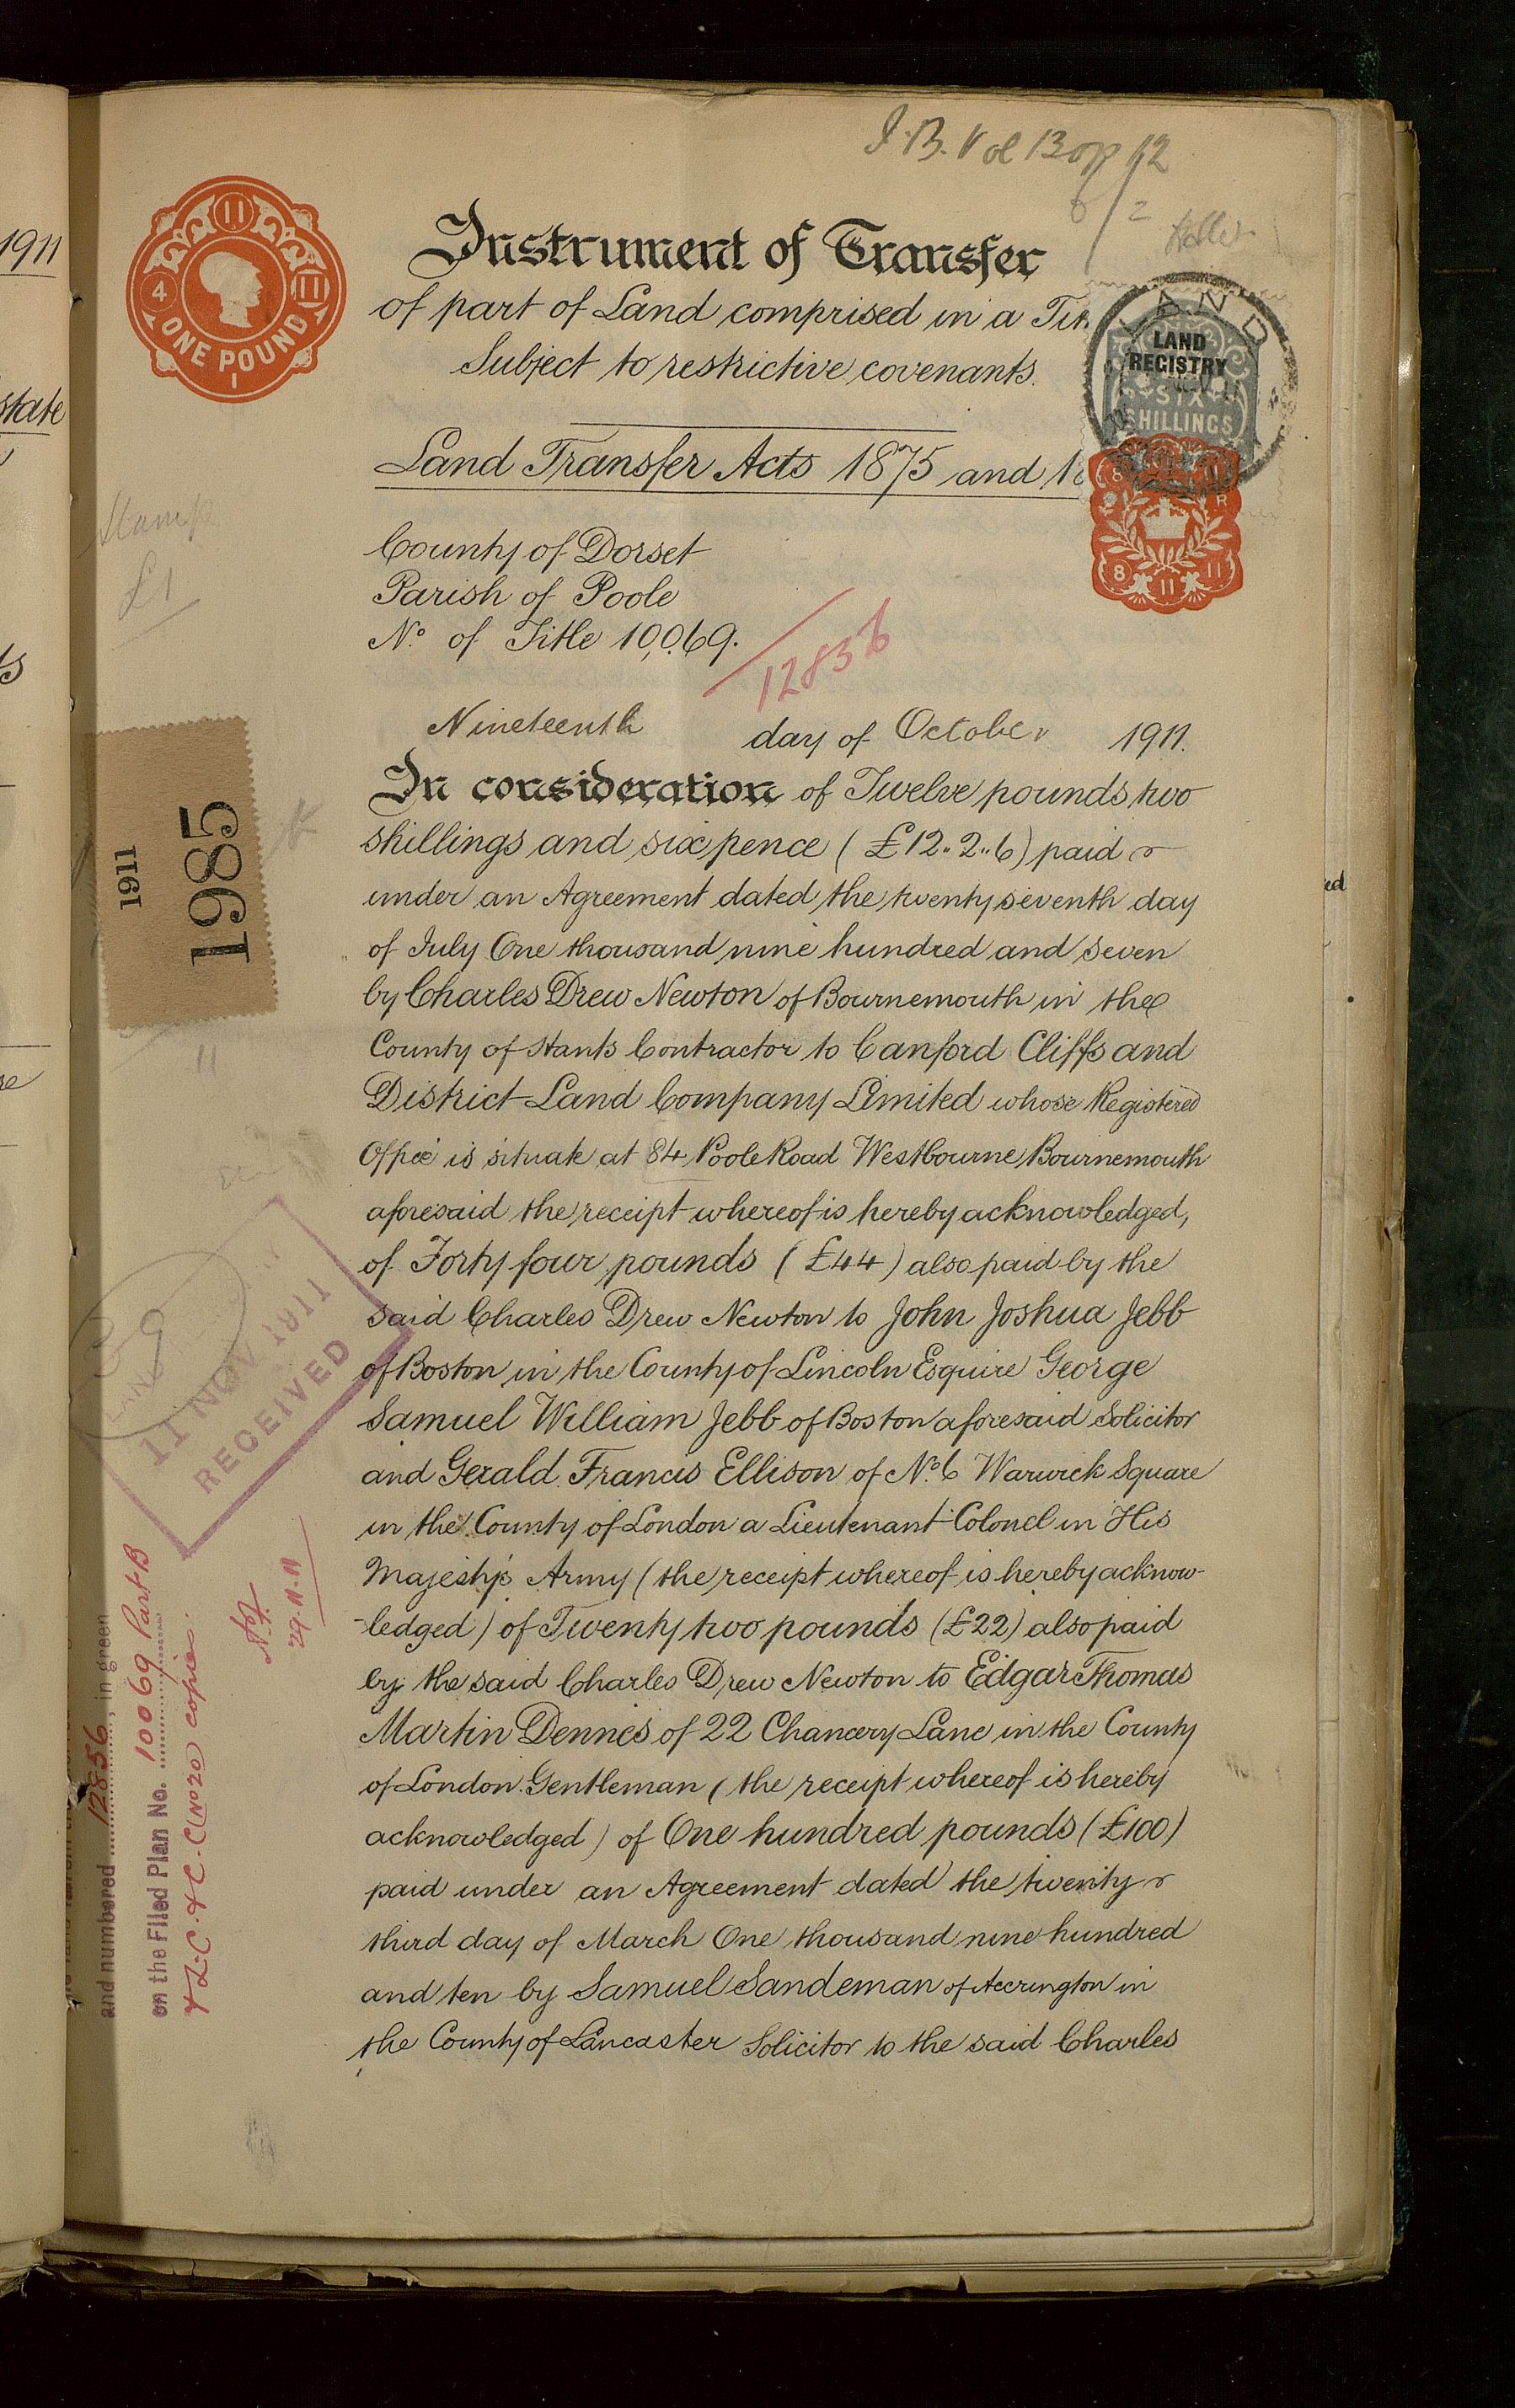 J.B. Vol 13 op 12
Instrument of Transfer
of part of Land comprised in a Tit
Subject to restrictive covenants.
11
4
11
ONE POUND
1
LAND
LAND
REGISTRY
SIX
SHILLINGS
8
R
8
11
11
Land Transfer Acts 1875 and 18
County of Dorset
Parish of Poole
No. of Title 10,069.
12836
Stamp
£1
Nineteenth day of October 1911.
In consideration of Twelve pounds two
shillings and six pence (£12..2..6) paid
under an Agreement dated the twenty seventh day
of July One thousand nine hundred and seven
by Charles Drew Newton of Bournemouth in the
County of Hants Contractor to Canford Cliffs and
District Land Company Limited whose Registered
Office is situate at 84 Poole Road Westbourne Bournemouth
aforesaid the receipt whereof is hereby acknowledged,
of Forty four pounds (£44) also paid by the
said Charles Drew Newton to John Joshua Jebb
of Boston in the County of Lincoln Esquire George
Samuel William Jebb of Boston aforesaid Solicitor
and Gerald Francis Ellison of No. 6 Warwick Square
in the County of London a Lieutenant-Colonel in His
Majesty's Army (the receipt whereof is hereby acknow-
-ledged) of Twenty two pounds (£22) also paid
by the said Charles Drew Newton to Edgar Thomas
Martin Dennes of 22 Chancery Lane in the County
of London Gentleman (the receipt whereof is hereby
acknowledged) of One hundred pounds (£100)
paid under an Agreement dated the twenty
third day of March One thousand nine hundred
and ten by Samuel Sandeman of Accrington in
the County of Lancaster Solicitor to the said Charles
1911
1985
11
11 NOV 1911
RECEIVED
29.11.11
and numbered 12856, in green
on the Filed Plan No. 10069 Part B
& L.C. & C.C (No 20 copies.
1911
state
ed